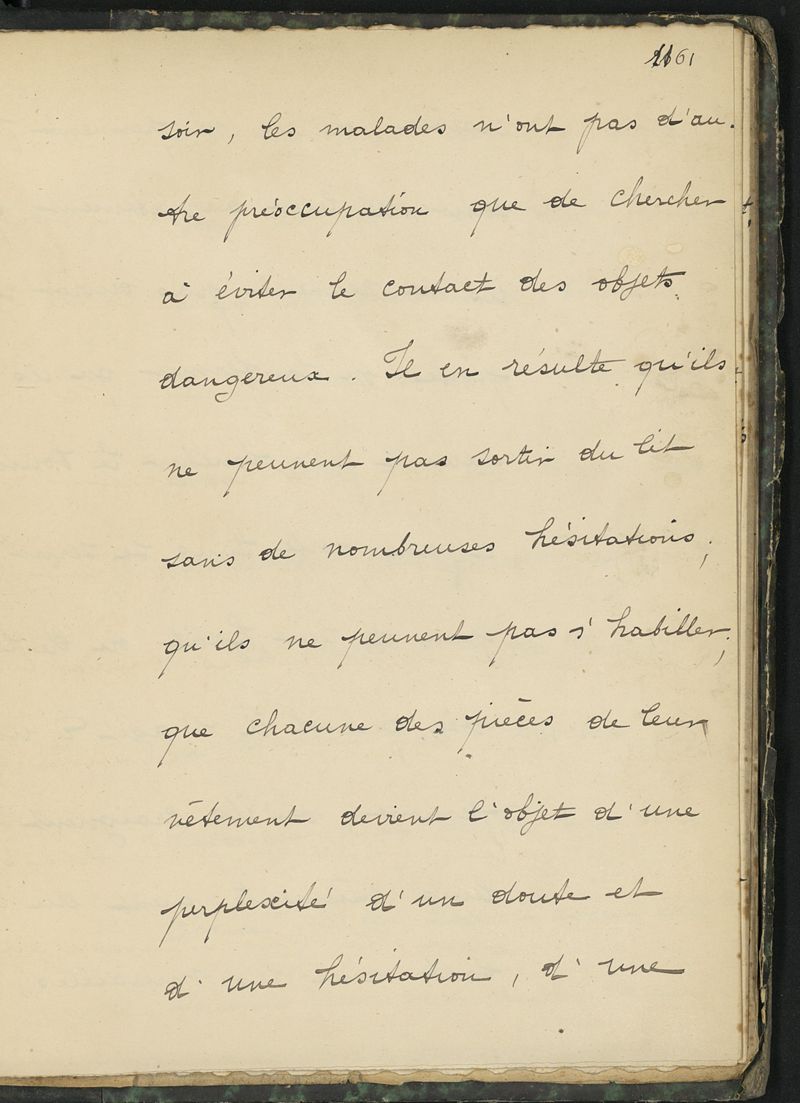 61
soir, les malades n'ont pas d'au-
tre préoccupation que de chercher
à éviter le contact des objets
dangereux. Il en résulte qu'ils
ne peuvent pas sortir du lit
sans de nombreuses hésitations;
qu'ils ne peuvent pas s'habiller;
que chacune des pièces de leur
vêtement devient l'objet d'une
perplexité d'un doute et
d'une hésitation, d'une